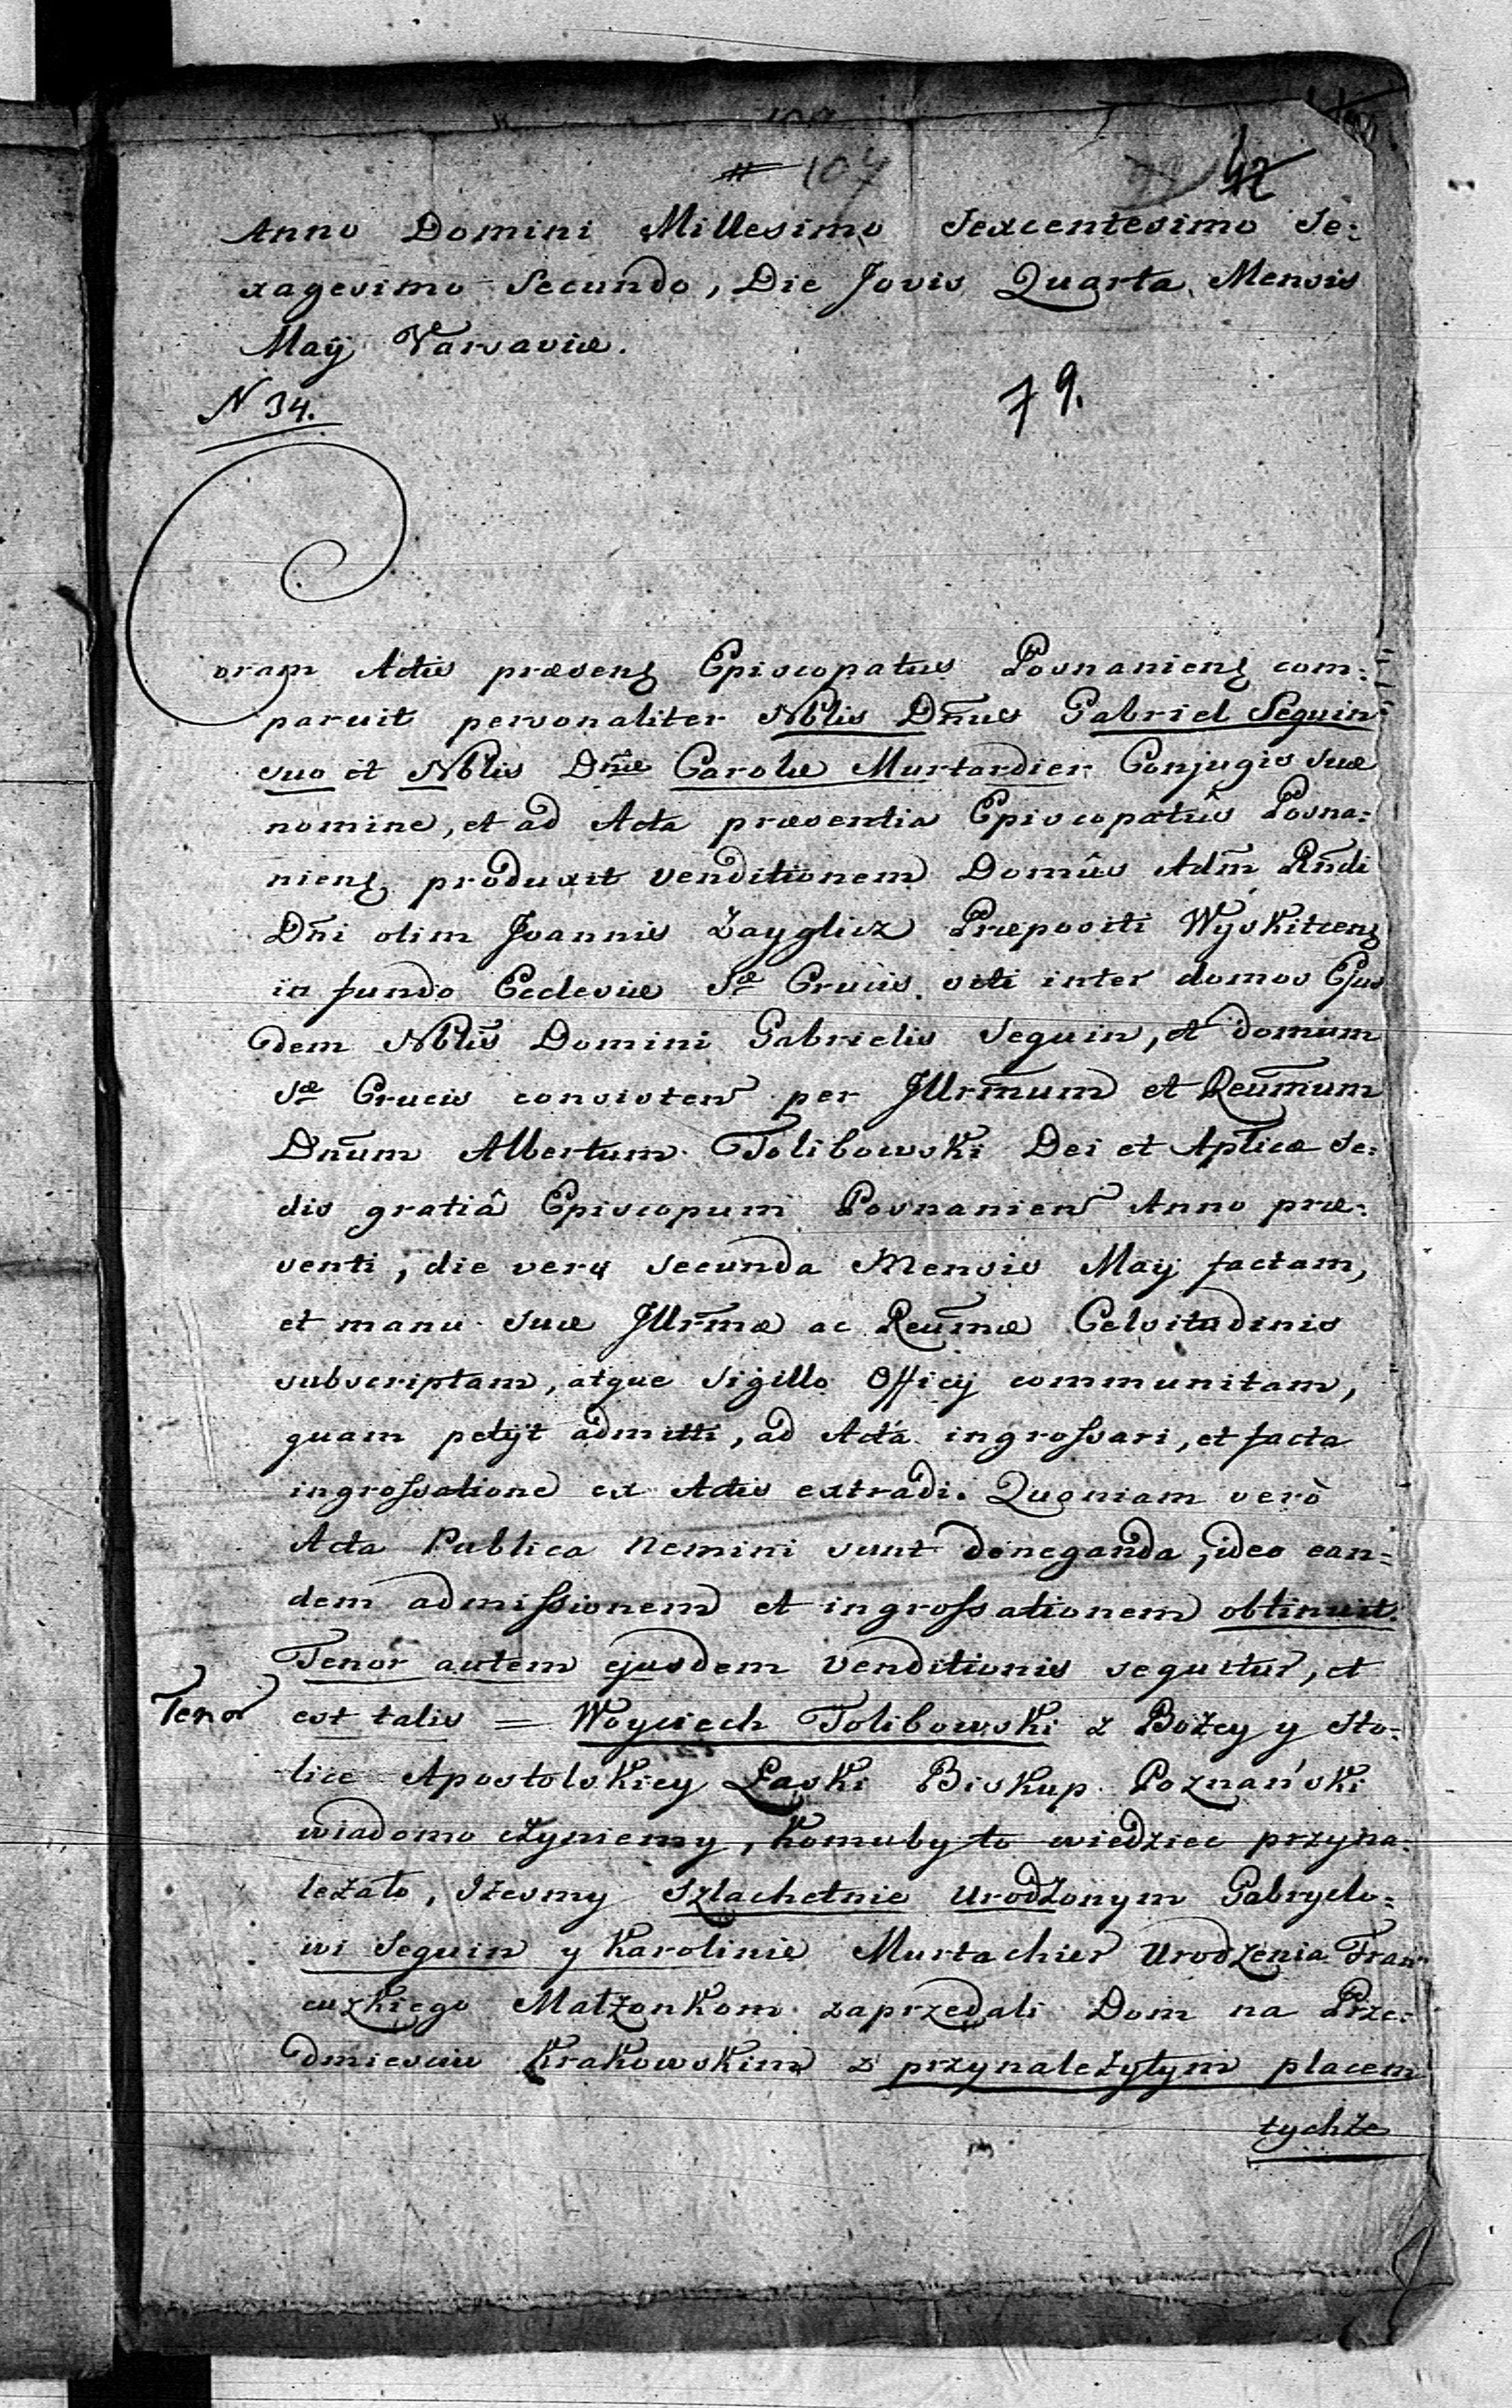 104 42
Anno Domini Millesimo Sexcentesimo Se:
xagesimo Secundo, Die Jovis Quarta Mensis
Maÿ Varsaviæ.
N 34.
79.
Coram Actis præsens Episcopatus Posnaniens com:
paruit personaliter Nblis Dnus Gabriel Seguin
suo et Nblis Dnæ Carolæ Murtardier Conjugis suæ
nomine, et ad Acta præsentia Episcopatûs Posna:
niens produxit venditionem Domûs Adm Rndi
Dni olim Joannis Zayglicz Præpositi Wyskitcens
in fundo Ecclesiæ Sæ Crucis siti inter domos Ejus
dem Nblis Domini Gabrielis Seguin, et domum
Sæ Crucis consisten per Illrmum et Reumum
Dnum Albertum Tolibowski Dei et Aplicæ Se:
dis gratiâ Episcopum Posnanien Anno præ:
senti, die vero secunda Mensis Maÿ factam,
et manu suæ Illrmæ ac Reumæ Celsitudinis
subscriptam, atque sigillo Officÿ communitam,
quam petÿt admitti, ad Acta ingrossari, et facta
ingrossatione ex Actis extradi. Quoniam verò
Acta Publica nemini sunt deneganda, ideo ean=
dem admissionem et ingrossationem obtinuit.
Tenor autem ejusdem venditionis sequitur, et
Tenor est talis = Woyciech Tolibowski z Bożey y Sto:
lice Apostolskiey Łaski Biskup Poznański
wiadomo czyniemy, komuby to wiedziec przyna:
leżało, Iżesmy Szlachetnie Urodzonym Gabryelo:
wi Seguin y Karolinie Murtachier Urodzenia Fran
cuzkiego Małżonkom zaprzedali Dom na Prze:
dmiesciu Krakowskim z przynależytym placem
tychże